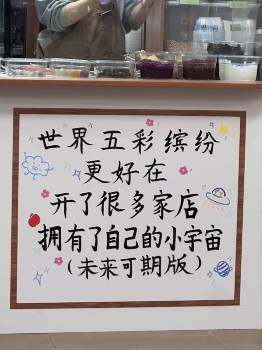 世界五彩缤纷
更好在
开了很多家店
拥有了自己的小宇宙
（未来可期版）